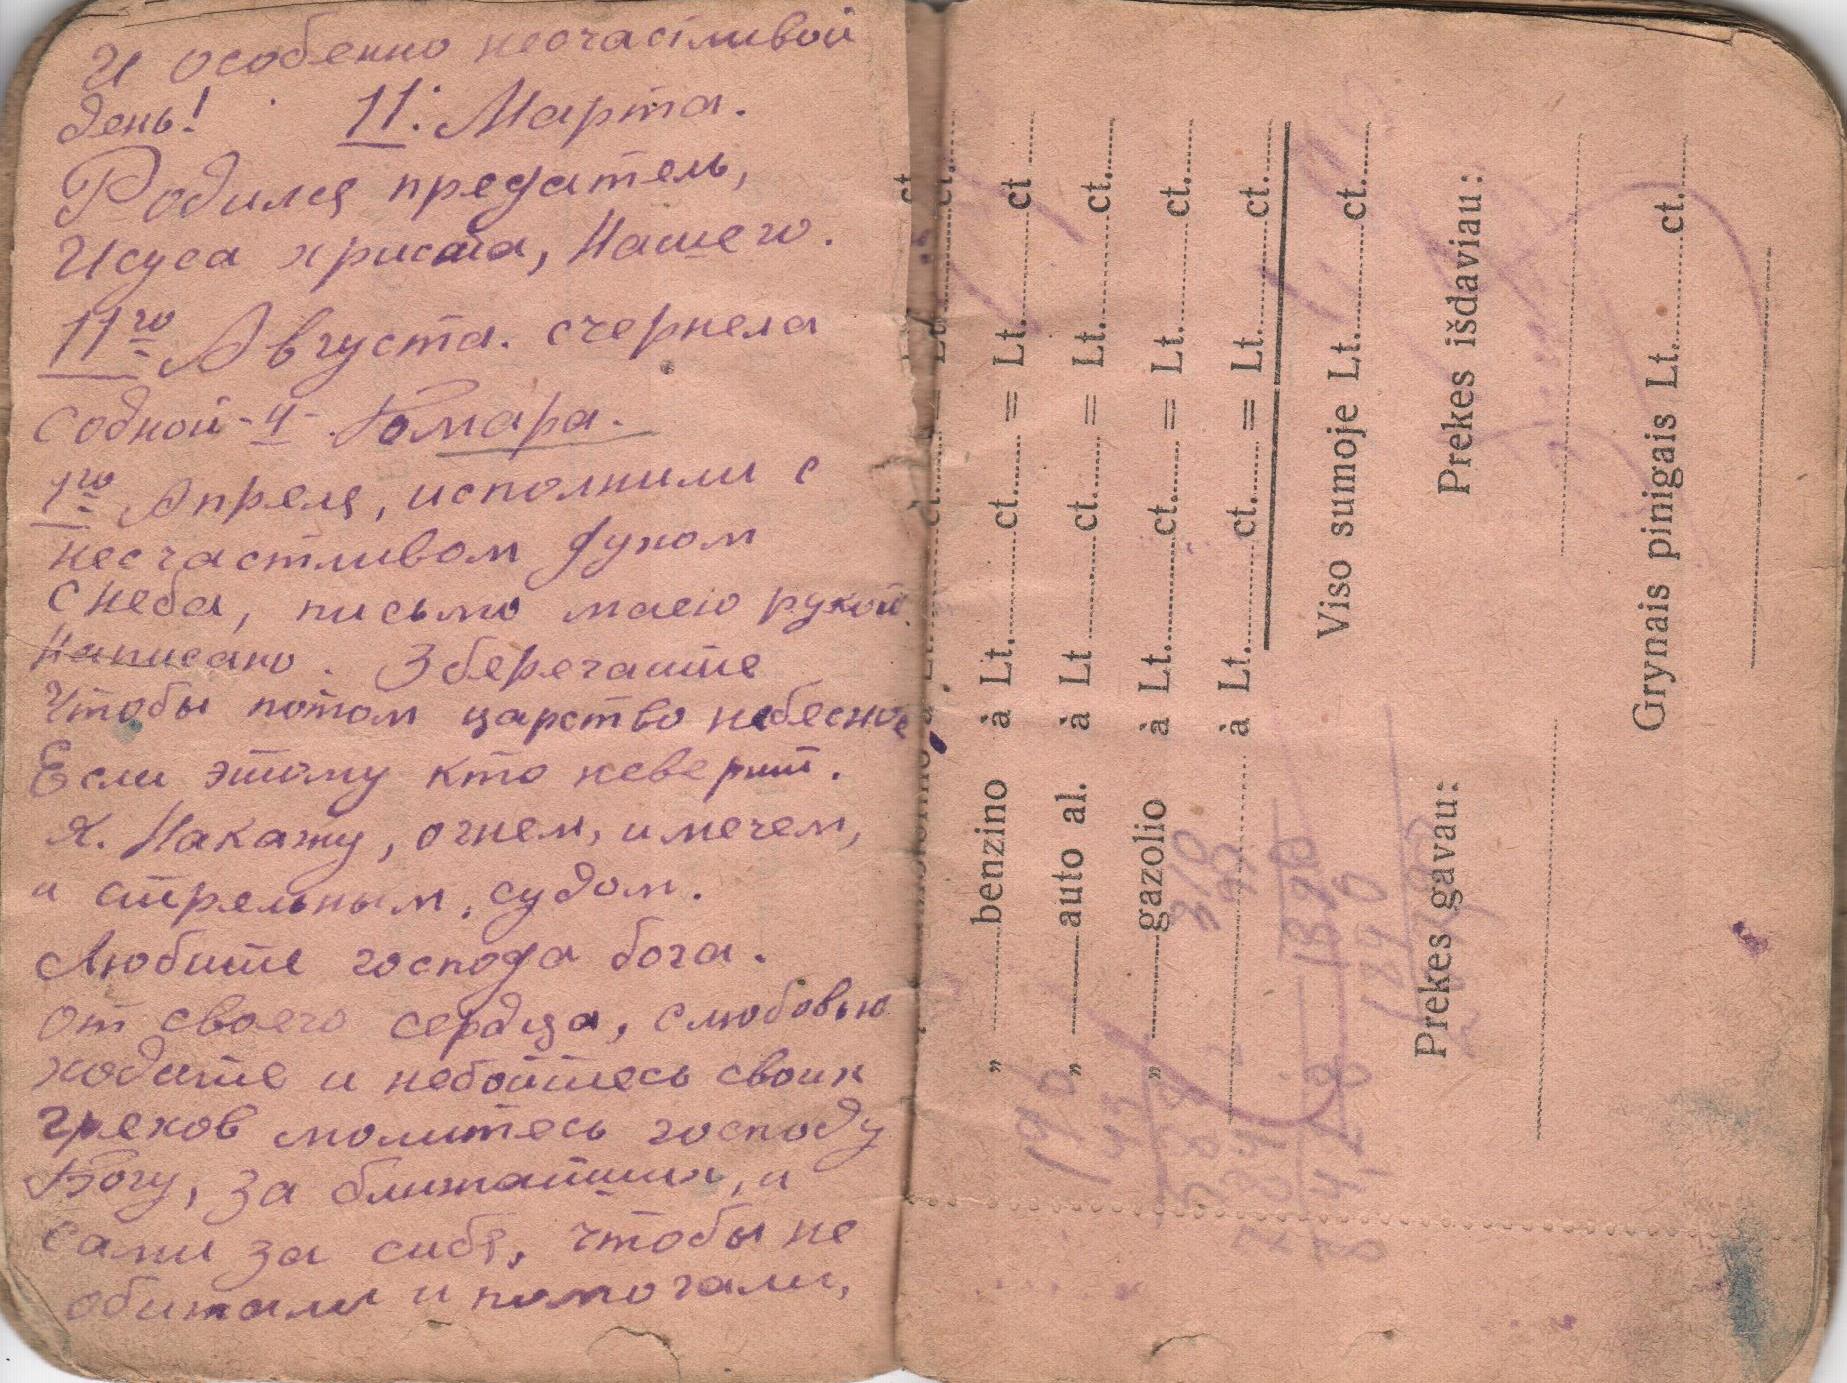 И особенно несчастливой
день! 11. Марта.
Родился предатель,
Исуса христа, Нашего.
11го Августа. счернела
содной -4- Гомара.
1го Апреля, исполнили с
несчастливом духом
с неба, письмо маею рукой
Написано. Зберегайте
Чтобы потом царство небесное
Если этому кто неверит.
Я. Накажу, огнем, и мечем,
и стрельным, судом.
Любите господа бога.
от своего сердца, слюбовью
ходите и небойтесь своих
грехов молитесь господу
Богу, за ближайших, и
сами за сибя, чтобы не
обижали и помогали,
„ benzino à Lt. ct. = Lt. ct
„ auto al. à Lt ct. = Lt. ct.
„ gazolio à Lt. ct. = Lt. ct.
à Lt. ct. = Lt. ct.
Viso sumoje Lt. ct.
Prekes gavau: Prekes išdaviau:
Grynais pinigais Lt. ct.